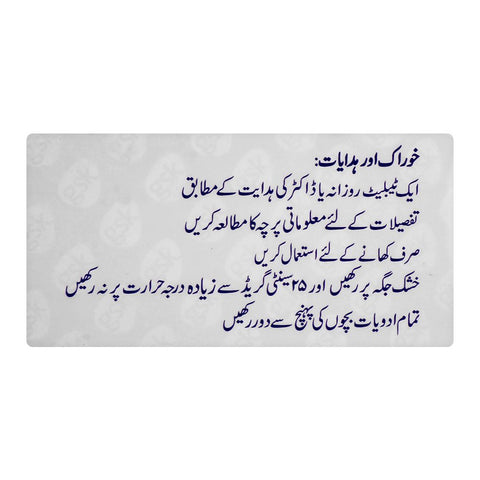 خوراک اور ہدایات:
ایک ٹیبلیٹ روزانہ یا ڈاکٹر کی ہدایت کے مطابق
تفصیلات کے لئے معلوماتی پرچہ کا مطالعہ کریں
صرف کھانے کے لئے استعمال کریں
خشک جگہ پر رکھیں اور ۲۵ سینٹی گریڈ سے زیادہ درجہ حرارت پر نہ رکھیں
تمام ادویات بچوں کی پہنچ سے دور رکھیں